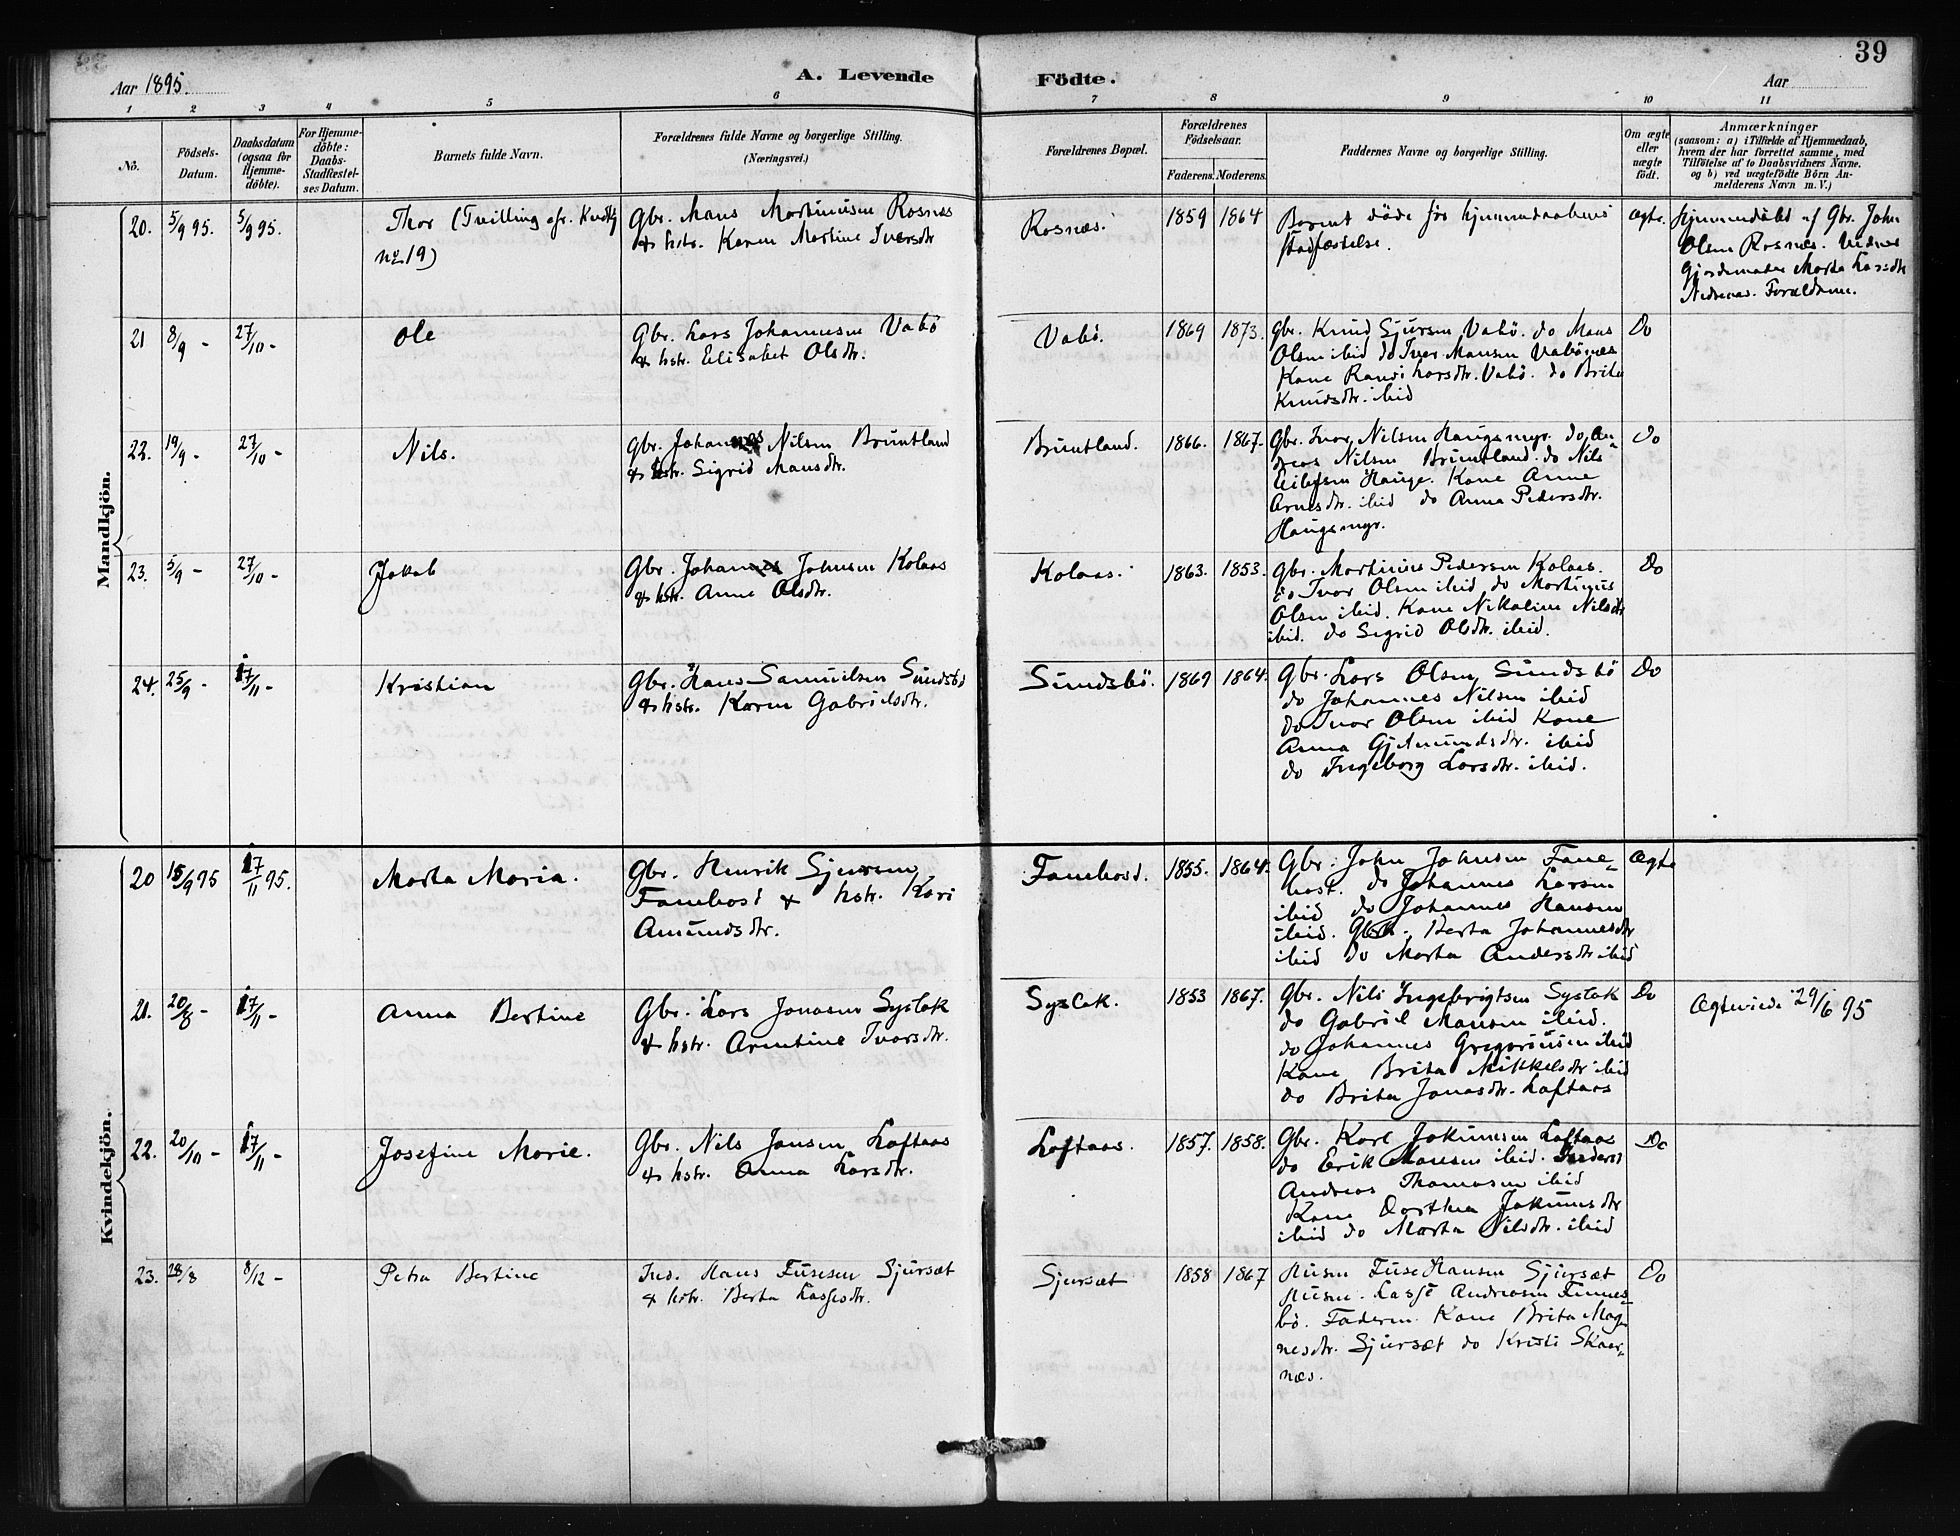 39
Aar 1895.
A. Levende
Födte.
Aar
1 2 3 4 5 6 7 8 9 10 11
No.
Födsels-
Datum.
Daabsdatum
(ogsaa for
Hjemme-
döbte).
For Hjemme-
döbte:
Daabs-
Stadfæstel-
ses Datum.
Barnets fulde Navn.
Forældrenes fulde Navne og borgerlige Stilling.
(Næringsvei.)
Forældrenes Bopæl.
Forældrenes
Födselsaar.
Faderens. Moderens.
Faddernes Navne og borgerlige Stilling.
Om ægte
eller
uægte
födt.
Anmærkninger
(saasom: a) i Tilfælde af Hjemmedaab,
hvem der har forrettet samme, med
Tilföielse af to Daabsvidners Navne.
og b) ved uægtefödte Börn An-
melderens Navn m. V.)
Mandkjön.
20. 5/9 95. 5/9 95.
Thor (Tvilling cfr. Kvdkj
no 19)
Gbr. Mans Martinusen Rosnæs
& hstr. Karen Martine Iversdtr
Rosnæs.
1859 1864
Barnet döde för hjemmedaabens
stadfæstelse.
Ægte.
Hjemmedöbt af Gbr. John
Olsen Rosnæs. Vidner
Gjordemoder Marta Larsdtr
Forældrene.
21 8/9 - 27/10 -
Ole
Gbr. Lars Johannesen Vabö
& hstr. Elisabet Olsdtr.
Vabö.
1869 1873.
Gbr. Knud Sjursen Vabö. do Mans
Olsen ibid do Iver Mansen Vabönes
Kone Randi Larsdtr. Vabö. do Brita
Knudsdtr. ibid
Do
22. 19/9 - 27/10 -
Nils.
Gbr. Johannes Nilsen Bruntland
& hstr. Sigrid Mansdtr.
Bruntland.
1866. 1867.
Gbr. Ivar Nilsen Haugsmyr. do An-
dreas Nilsen Bruntland. do Nils
Hauge. Kone Anne
Arnesdtr. ibid do Anna Pedersdtr.
Haugsmyr.
Do
23. 5/9 - 27/10 -
Jakob
Gbr. Johannes Johnsen Kolaas
& hstr. Anne Olsdtr.
Kolaas.
1863. 1853.
Gbr. Martinus Pedersen Kolaas.
do Ivar Olsen ibid do Martinus
Olsen ibid. Kone Nikoline Nilsdtr
ibid. do Sigrid Olsdtr. ibid.
Do
24. 25/9 - 17/11 -
Kristian
Gbr. Hans Samuelsen Sundsbö
& hstr. Karen Gabrielsdtr.
Sundsbö.
1869 1864.
Gbr. Lars Olsen Sundsbö
do Johannes Nilsen ibid
do Ivar Olsen ibid Kone
Anna ibid
do Ingeborg Larsdtr. ibid.
Do
Kvindekjön.
20 15/9 95 17/11 95.
Marta Maria.
Gbr. Henrik Sjursen
Fanebost & hstr. Kari
Amundsdtr.
Fanebost.
1855. 1864.
Gbr. John Johnsen Fane-
bost. do Johannes Larsen
ibid do Johannes Hansen
ibid. Berta Johannesdtr
ibid do Marta Andersdtr ibid
Ægte
21. 20/8 - 17/11 -
Anna Bertine
Gbr. Lars Jonasen Syslak
& hstr. Arntine Ivarsdtr.
Syslak.
1853 1867.
Gbr. Nils Ingebrigtsen Syslak
do Gabriel Mansen ibid.
do Johannes Gregoriusen ibid
Kone Brita Mikkelsdtr ibid
do Brita Jonasdtr. Loftaas
Do
Ægteviede 29/6 95
22. 20/10 - 17/11 -
Josefine Marie.
Gbr. Nils Jansen Loftaas
& hstr. Anna Larsdtr.
Loftaas.
1857. 1858.
Gbr. Karl Jokumsen Loftaas
do Erik Mansen ibid.
Andreas Thomasen ibid
Kone Dorthea Jokumsdtr
ibid do Marta Nilsdtr. ibid
Do
23. 28/8 8/12 -
Petra Bertine
Ind. Hans Fusesen Sjursæt
& hstr. Berta Lassesdtr.
Sjursæt
1858 1867
Husm Fuse Hansen Sjursæt
Husm. Lasse Andreasen Finnes-
bö. Faderen. Kone Brita Mag-
nesdtr. Sjursæt do Kristi Skaar-
næs.
Do